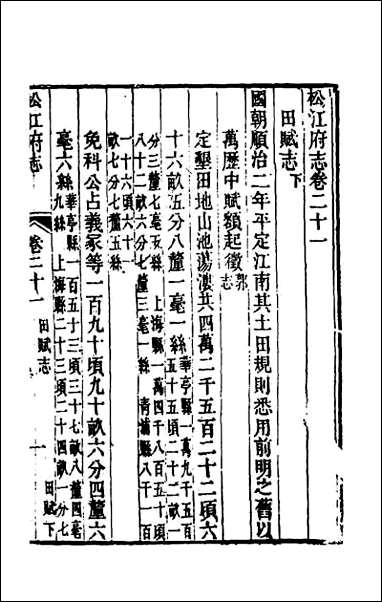 松江府志卷二十一
田賦志下
國朝順治二年平定江南其土田規則悉用前明之舊以
萬歷中賦額起徵郭志
定墾田地山池蕩漊共四萬二千五百二十二頃六
十六畝五分八釐一毫一絲華亭縣一萬九千五百五十五頃二十二畝一
分三釐七毫五絲上海縣一萬四千八百五十頃八十二畝六分七釐三毫一絲青埔縣八千一百
一十六頃六十一畝七分七釐五絲
免科公占義冢等一百九十頃九十畝六分四釐六
毫六絲華亭縣一百五十三頃三十七畝八釐四毫九絲上海縣二十三頃二十四畝一分七
松江府志
卷二十一
田賦志
一
田賦下